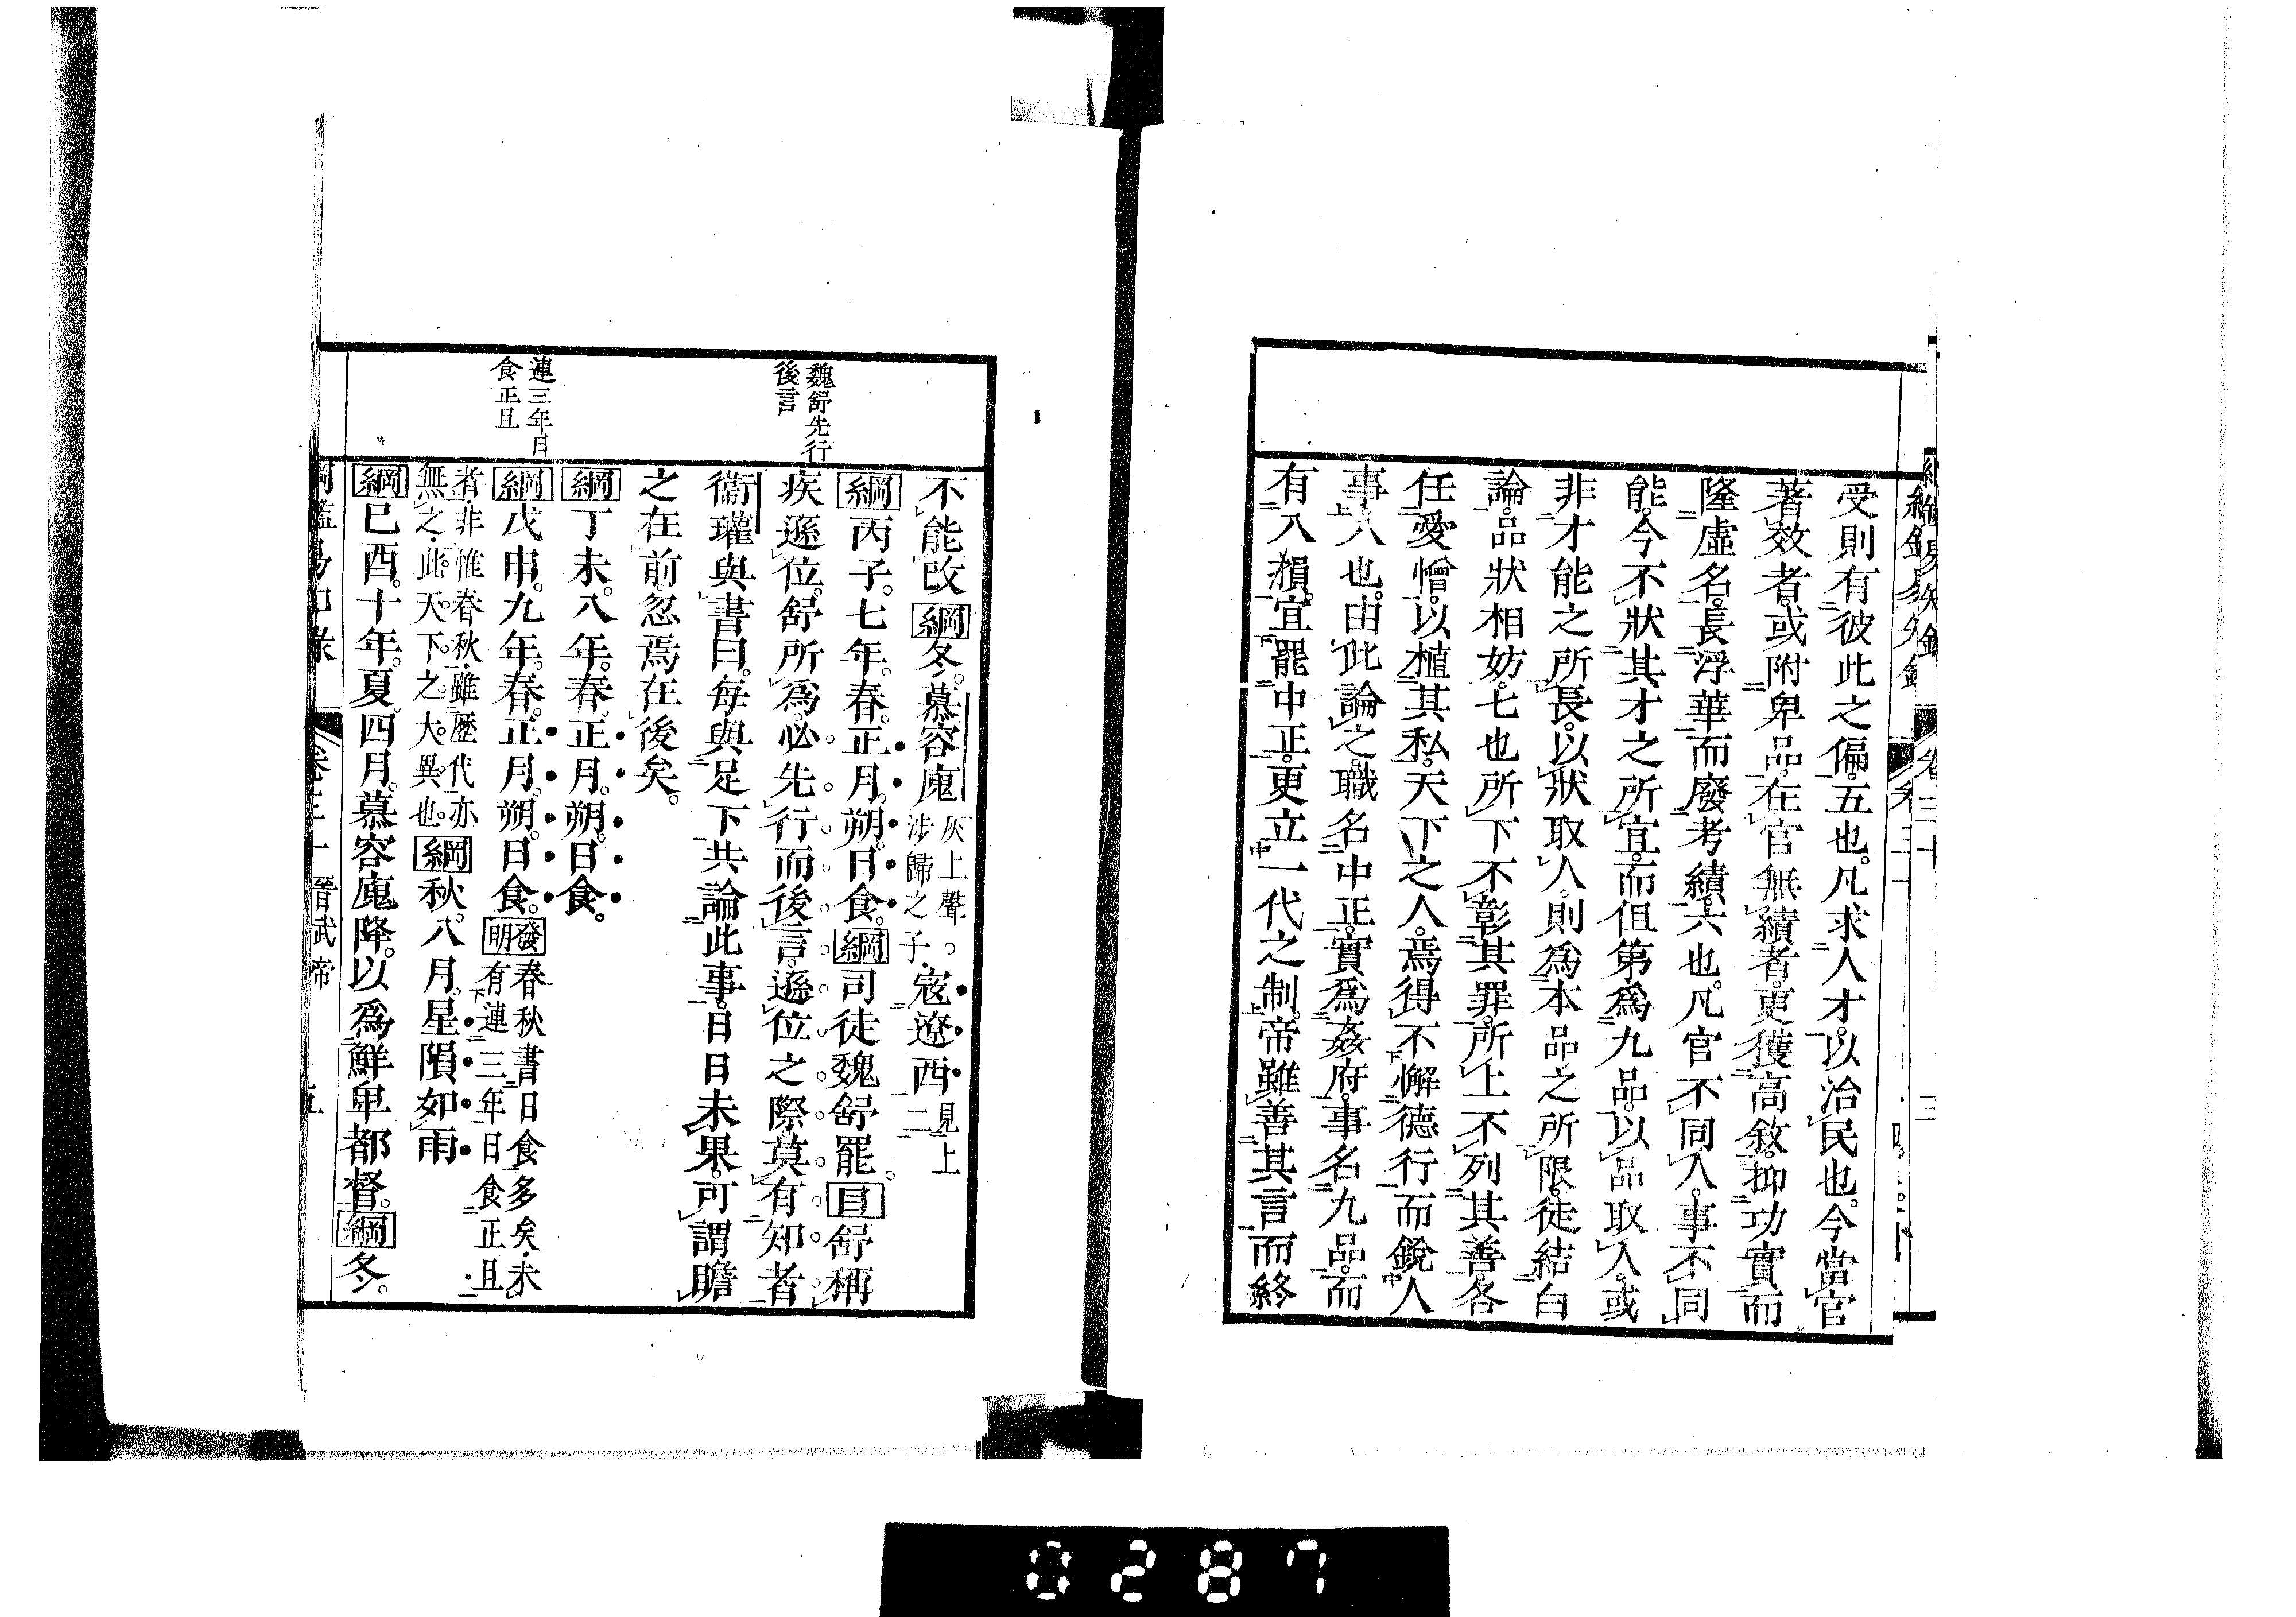 受則有彼此之偏。五也。凡求人才。以治民也。今當官
著效者。或附卑品。在官無績者。更獲高敘。抑功實而
隆虛名。長浮華而廢考績。六也。凡官不同人。事不同
能。今不狀其才之所宜。而但第為九品。以品取人。或
非才能之所長。以狀取人。則為本品之所限。徒結白
論。品狀相妨。七也。所下不彰其罪。所上不列其善。各
任愛憎。以植其私。天下之人。焉得不懈德行而銳人
事。八也。由此論之。職名中正。實為姦府。事名九品。而
有八損。宜罷中正。更立一代之制。帝雖善其言。而終
不能改綱冬。慕容廆灰上聲。涉歸之子。寇遼西見上二
魏舒先行後言
綱丙子。七年。春。正月。朔。日食。綱司徒魏舒罷。目舒稱
疾遜位。舒所為。必先行而後言。遜位之際。莫有知者
衞瓘與書曰。每與足下共論此事。日日未果。可謂瞻
之在前。忽焉在後矣。
綱丁未。八年。春。正月。朔。日食。
連三年日食正旦
綱戊申。九年。春。正月。朔。日食。發明春秋書日食多矣。未有連三年日食正旦
者。非惟春秋。雖歷代亦無之。此天下之大異也。綱秋。八月。星隕如雨
綱己酉。十年。夏。四月。慕容廆降。以為鮮卑都督。綱冬。
晉武帝
0287